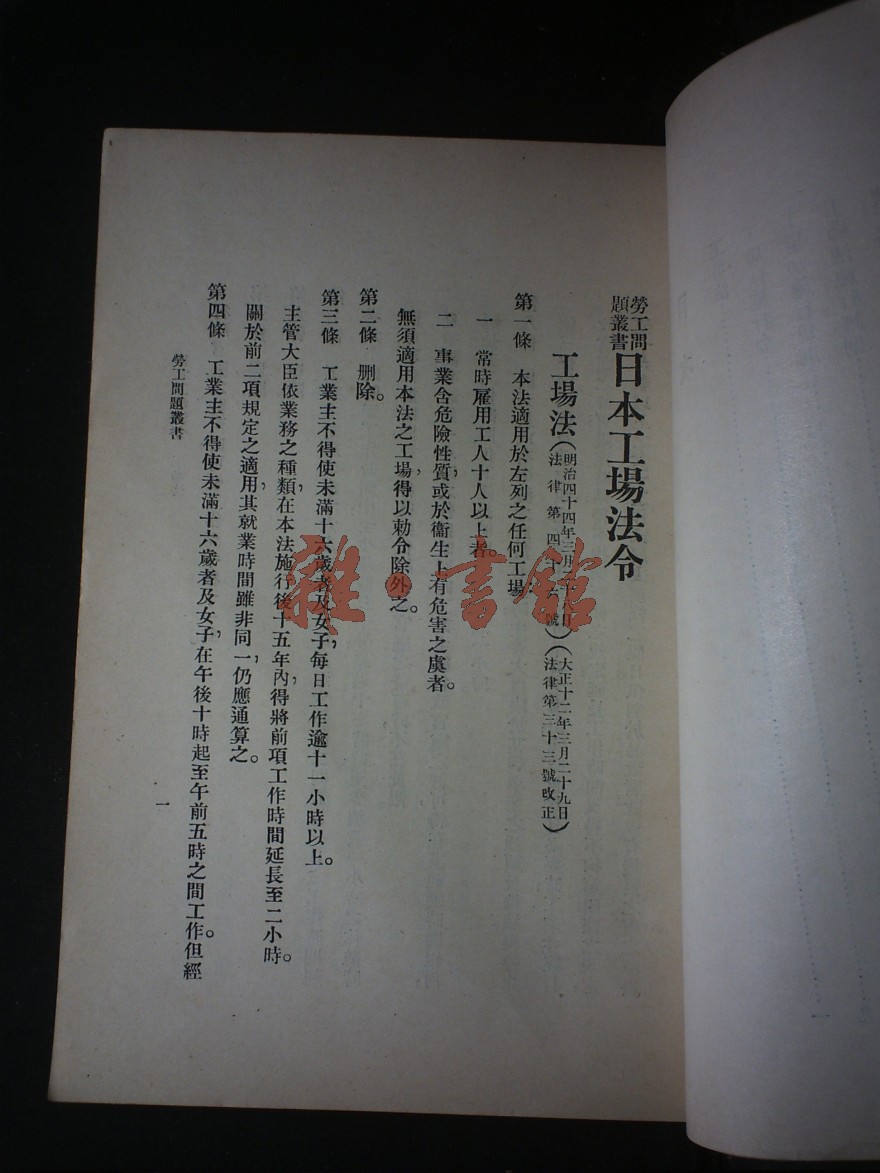 勞工問題叢書 日本工場法令
工場法(明治四十四年三月 日法律第四十 號)(大正十二年三月二十九日法律第三十三號改正)
第一條 本法適用於左列之任何工場
一 常時雇用工人十人以上者。
二 事業含危險性質,或於衞生上有危害之虞者。
無須適用本法之工場,得以勅令除外之。
第二條 删除。
第三條 工業主不得使未滿十六歲者及女子,每日工作逾十一小時以上。
主管大臣依業務之種類在本法施行後十五年內,得將前項工作時間延長至二小時。
關於前二項規定之適用,其就業時間雖非同一,仍應通算之。
第四條 工業主不得使未滿十六歲者及女子,在午後十時起至午前五時之間工作。但經
勞工問題叢書
一
雜·書館